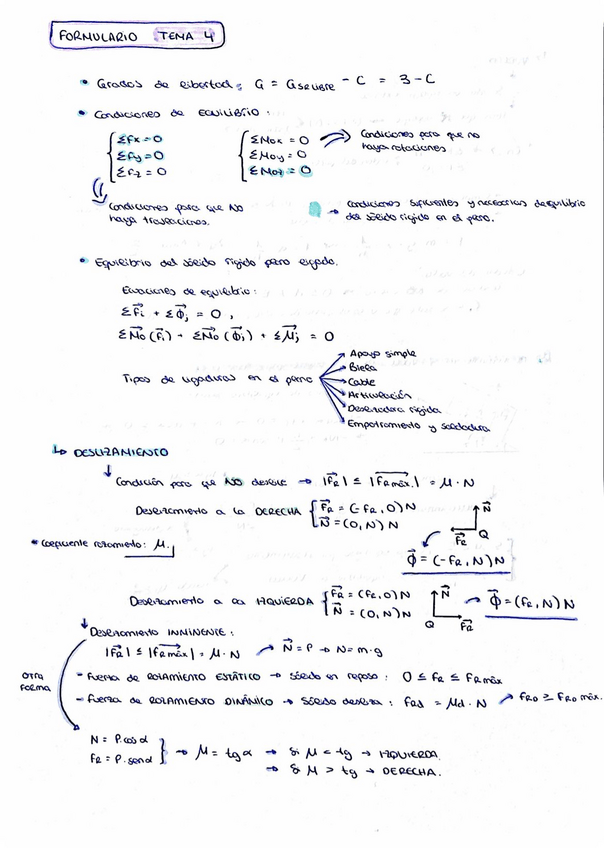 FORMULARIO TEMA 4
• Grados de libertad: G = GSRLIBRE - C = 3 - C
• Condiciones de EQUILIBRIO:
ΣFx = 0 ΣMox = 0 Condiciones para que no
ΣFy = 0 ΣMoy = 0 haya rotaciones
ΣFz = 0 ΣMoz = 0
Condiciones para que NO
haya traslaciones.
→ Condiciones suficientes y necesarias de equilibrio
del sólido rígido en el plano.
• Equilibrio del sólido rígido plano ligado.
Ecuaciones de equilibrio:
ΣF⃗i + Σϕ⃗j = 0 ,
ΣM⃗o (F⃗i) + ΣM⃗o (ϕ⃗i) + Σμ⃗j = 0
Tipos de ligaduras en el plano
Apoyo simple
Biela
Cable
Articulación
Deslizadera rígida
Empotramiento y soldadura
↳ DESLIZAMIENTO
Condición para que NO deslice → |F⃗R| ≤ |F⃗Rmáx.| = μ · N
Deslizamiento a la DERECHA { F⃗R = (-FR, 0) N
N⃗ = (0, N) N
N⃗
F⃗R Q
* Coeficiente rozamiento: μ.
ϕ⃗ = (-FR, N) N
Deslizamiento a la IZQUIERDA { F⃗R = (FR, 0) N
N⃗ = (0, N) N
N⃗
Q F⃗R
→ ϕ⃗ = (FR, N) N
Deslizamiento INMINENTE:
|F⃗R| ≤ |F⃗Rmáx| = μ · N → N⃗ = P → N = m·g
OTRA
FORMA
- Fuerza de ROZAMIENTO ESTÁTICO → Sólido en reposo: 0 ≤ FR ≤ FRmáx
- Fuerza de ROZAMIENTO DINÁMICO → Sólido desliza: FRd = μd · N → FRD ≥ FRD máx.
N = P·cos α
FR = P·sen α } → μ = tg α → si μ < tg → IZQUIERDA.
→ si μ > tg → DERECHA.